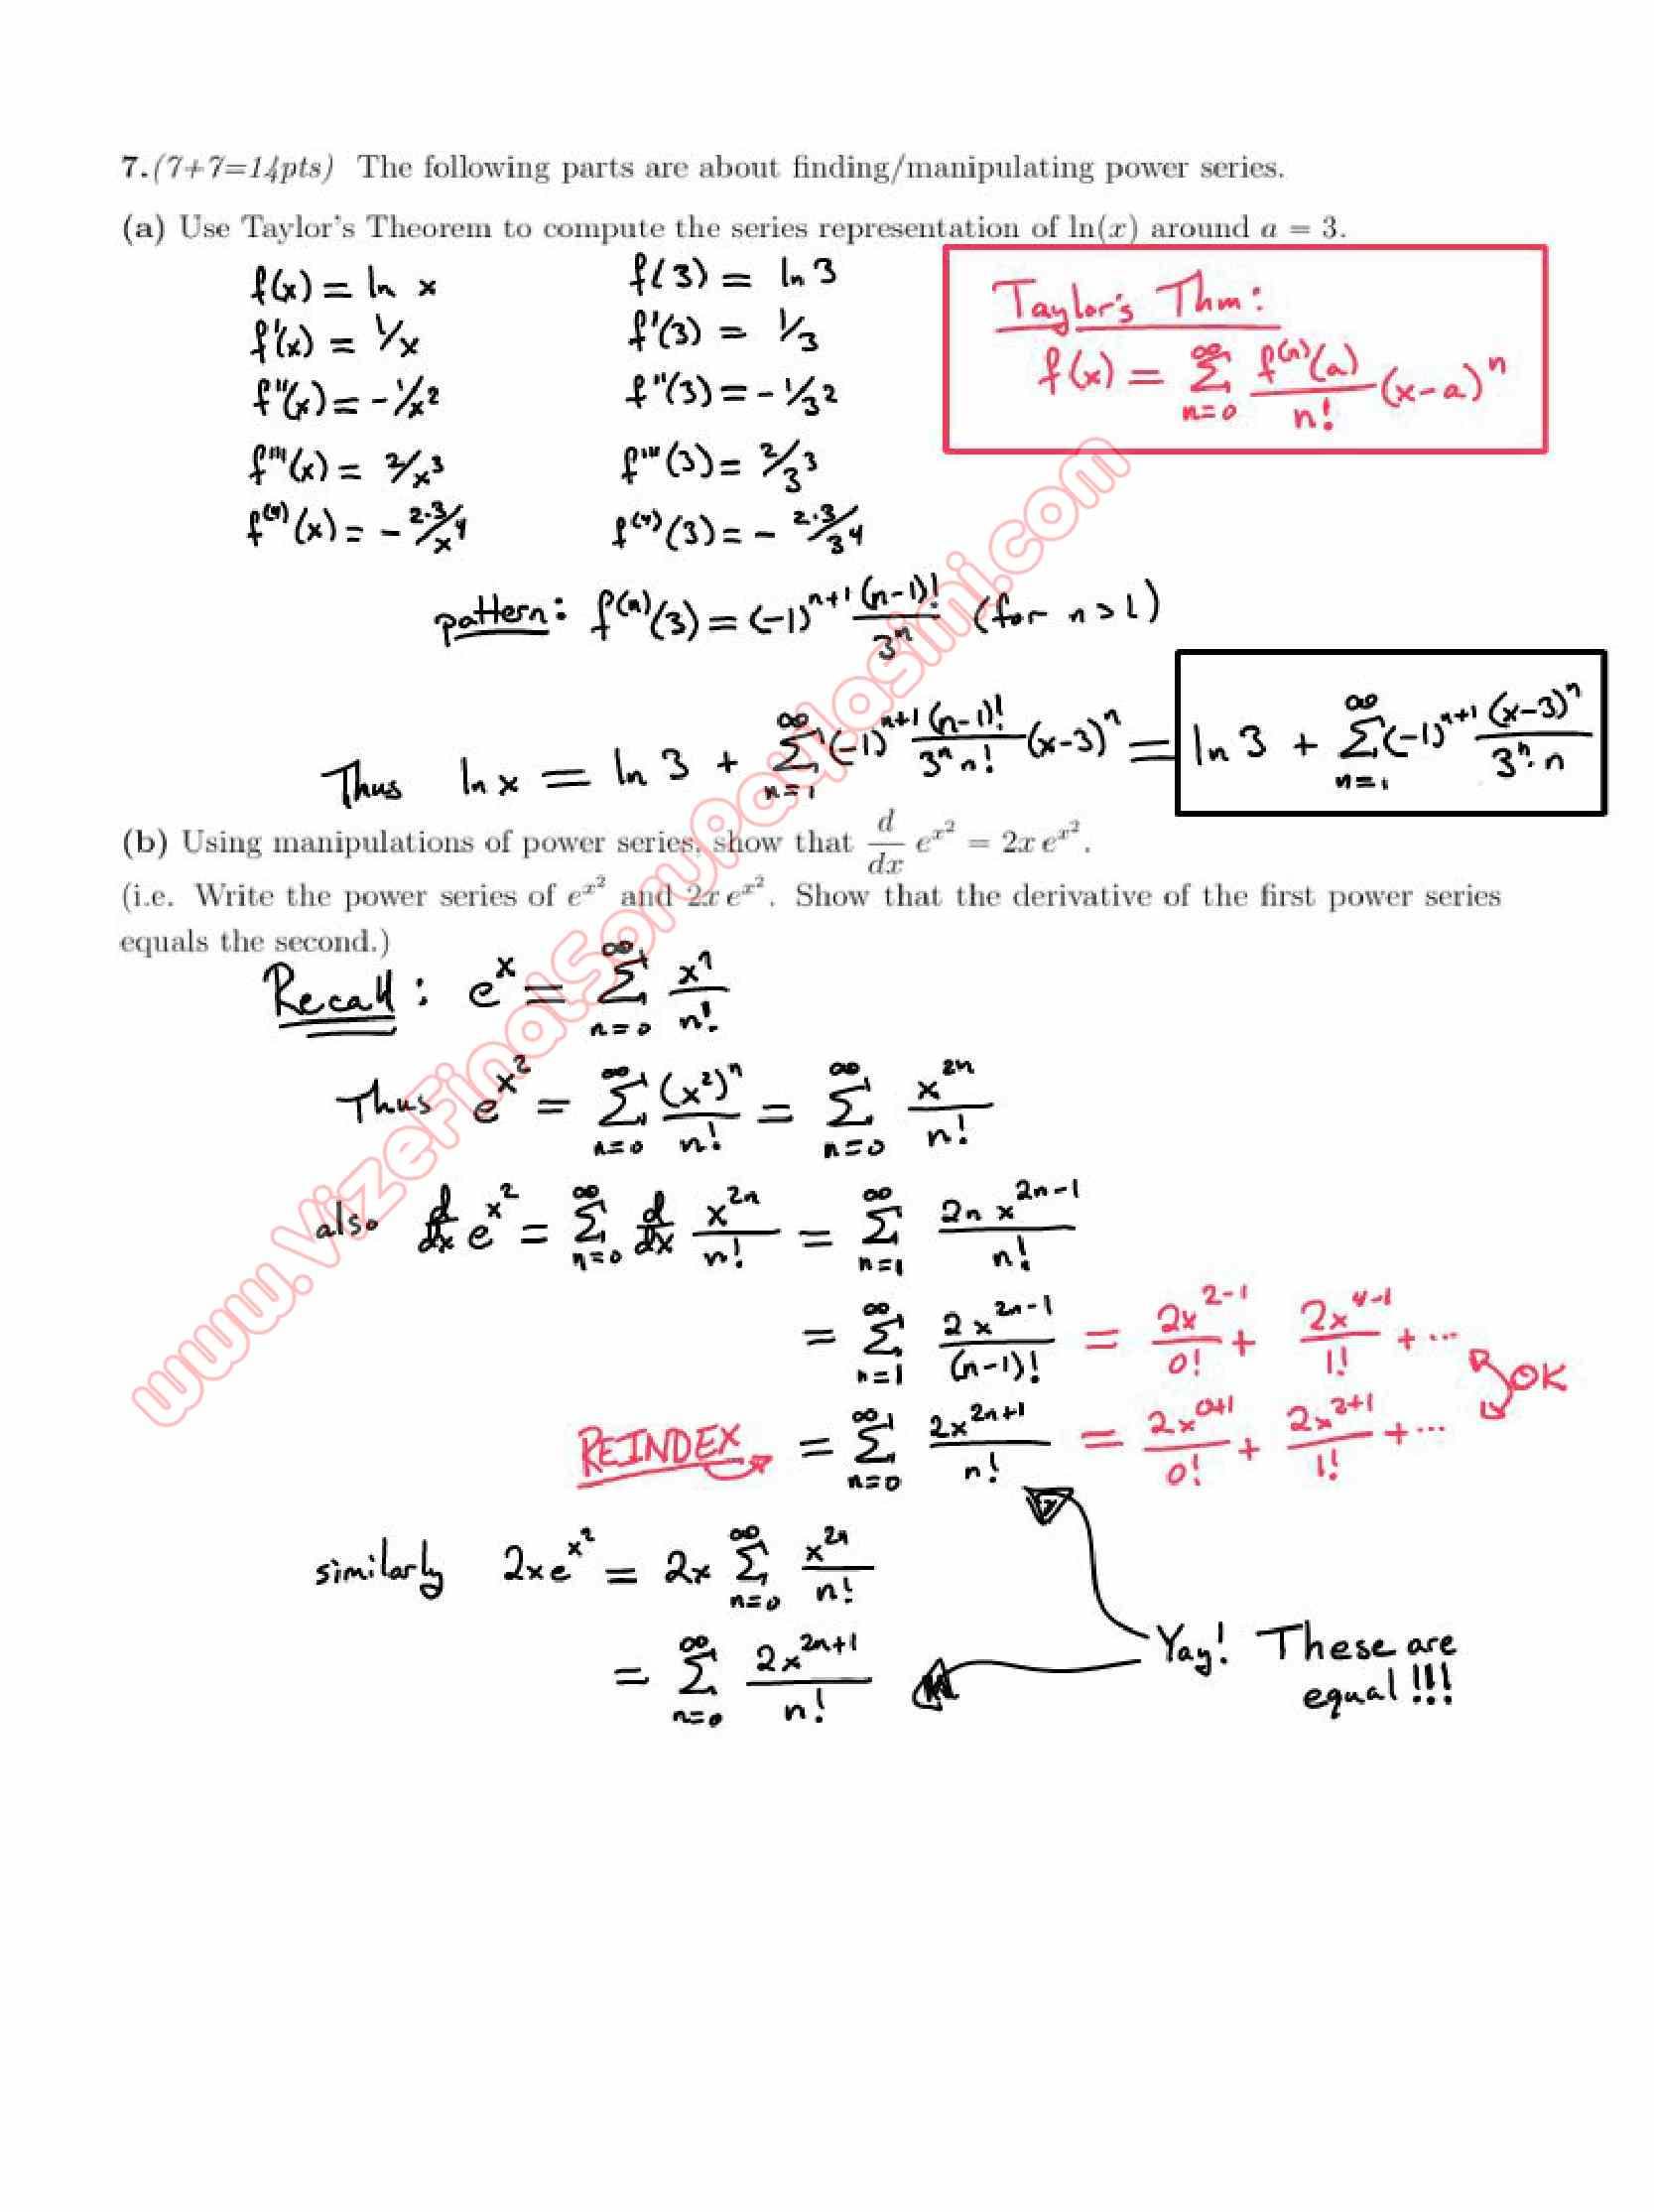 7.(7+7=14pts) The following parts are about finding/manipulating power series.
(a) Use Taylor's Theorem to compute the series representation of ln(x) around a = 3.
f(x) = ln x f(3) = ln 3
f'(x) = 1/x f'(3) = 1/3
f''(x) = -1/x² f''(3) = -1/3²
f'''(x) = 2/x³ f'''(3) = 2/3³
f⁽⁴⁾(x) = - 2·3/x⁴ f⁽⁴⁾(3) = - 2·3/3⁴
Taylor's Thm:
f(x) = ∑_{n=0}^{∞} f⁽ⁿ⁾(a)/n! (x-a)ⁿ
pattern: f⁽ⁿ⁾(3) = (-1)ⁿ⁺¹ (n-1)!/3ⁿ (for n>1)
Thus ln x = ln 3 + ∑_{n=1}^{∞} (-1)ⁿ⁺¹ (n-1)!/(3ⁿ n!) (x-3)ⁿ = ln 3 + ∑_{n=1}^{∞} (-1)ⁿ⁺¹ (x-3)ⁿ/(3ⁿ·n)
(b) Using manipulations of power series, show that d/dx e^{x²} = 2x e^{x²}.
(i.e. Write the power series of e^{x²} and 2x e^{x²}. Show that the derivative of the first power series
equals the second.)
Recall: e^x = ∑_{n=0}^{∞} xⁿ/n!
Thus e^{x²} = ∑_{n=0}^{∞} (x²)ⁿ/n! = ∑_{n=0}^{∞} x^{2n}/n!
also d/dx e^{x²} = ∑_{n=0}^{∞} d/dx x^{2n}/n! = ∑_{n=1}^{∞} 2n x^{2n-1}/n!
= ∑_{n=1}^{∞} 2x^{2n-1}/(n-1)! = 2x^{2-1}/0! + 2x^{4-1}/1! + ...
OK
REINDEX = ∑_{n=0}^{∞} 2x^{2n+1}/n! = 2x^{0+1}/0! + 2x^{2+1}/1! + ...
similarly 2xe^{x²} = 2x ∑_{n=0}^{∞} x^{2n}/n!
= ∑_{n=0}^{∞} 2x^{2n+1}/n!
Yay! These are
equal!!!
www.VizeFinalSoruPaylasimi.com